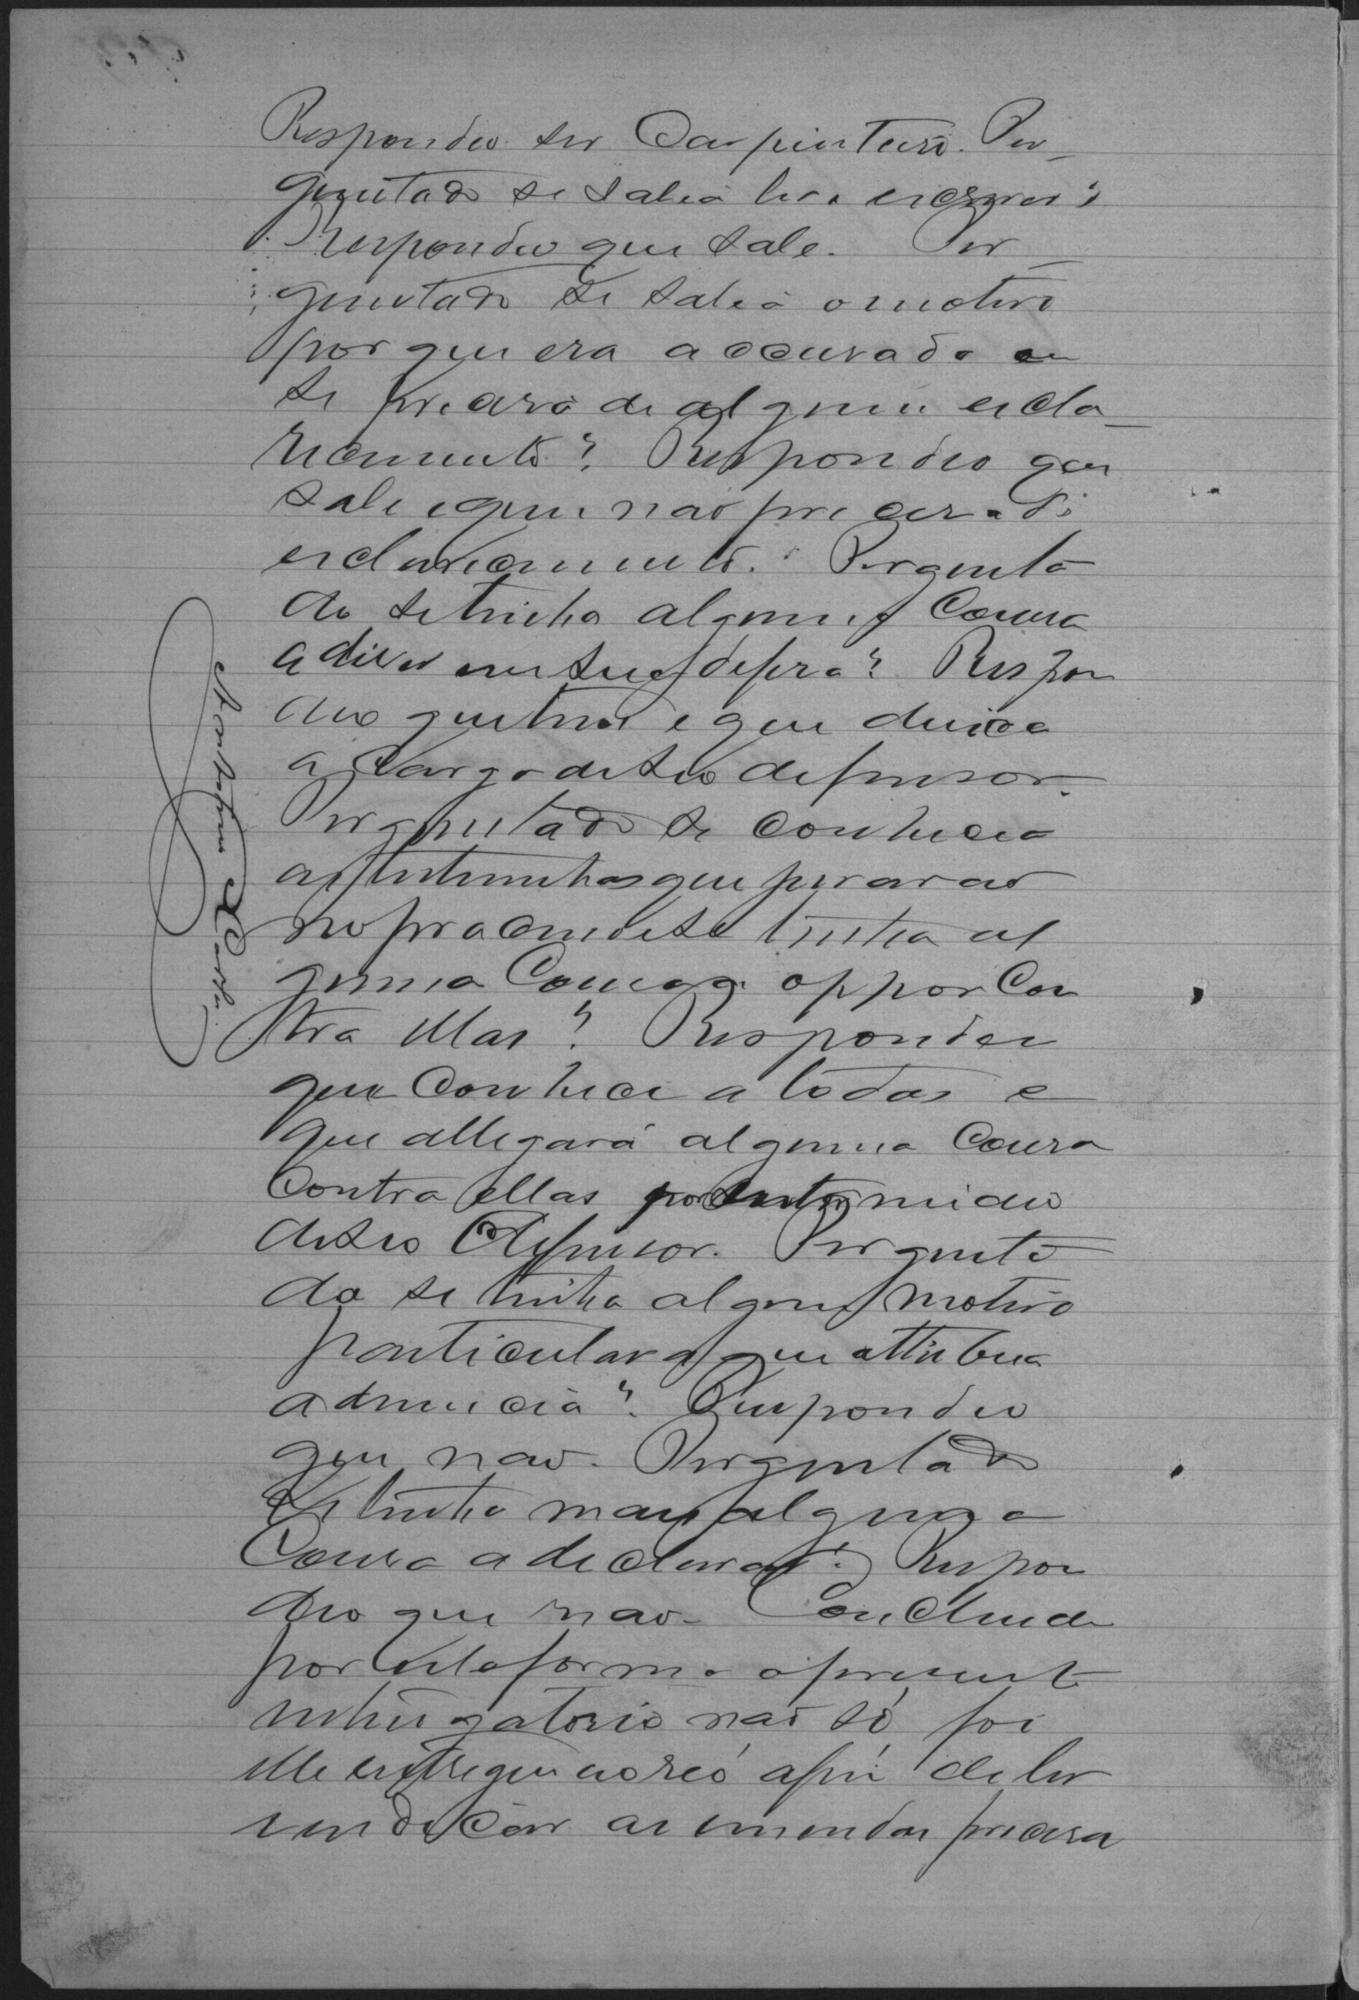 Respondeo ser Carpinteiro. Per-
guntado se sabia ler e escrever?
Respondeo que sabe. Per-
guntado se sabia o motivo
por que era accusado ou
se precisa de algum escla-
recimento? Respondeo que
sabe e que não precisa de
esclarecimento. Pergunta
do se tinha alguma cousa
a dizer em sua defesa? Respon
deo que tem e que deixa
a cargo de seo defensor.
Perguntado se conhecia
as testemunhas que juraram
no processo e se tinha al
guma cousa a oppor con
tra ellas? Respondeu
que conhece a todas e
que allegará alguma cousa
contra ellas por intermedio
de seo defensor. Pergunta
do se tinha algum motivo
particular a que attribua
a denuncia? Respondeo
que não. Perguntado
se tinha mais alguma
cousa a declarar? Respon
deo que não. Conclue
por esta forma o presente
interrogatorio não só foi
elle entregue ao réo afim de ler
e indicar as emendas precisa